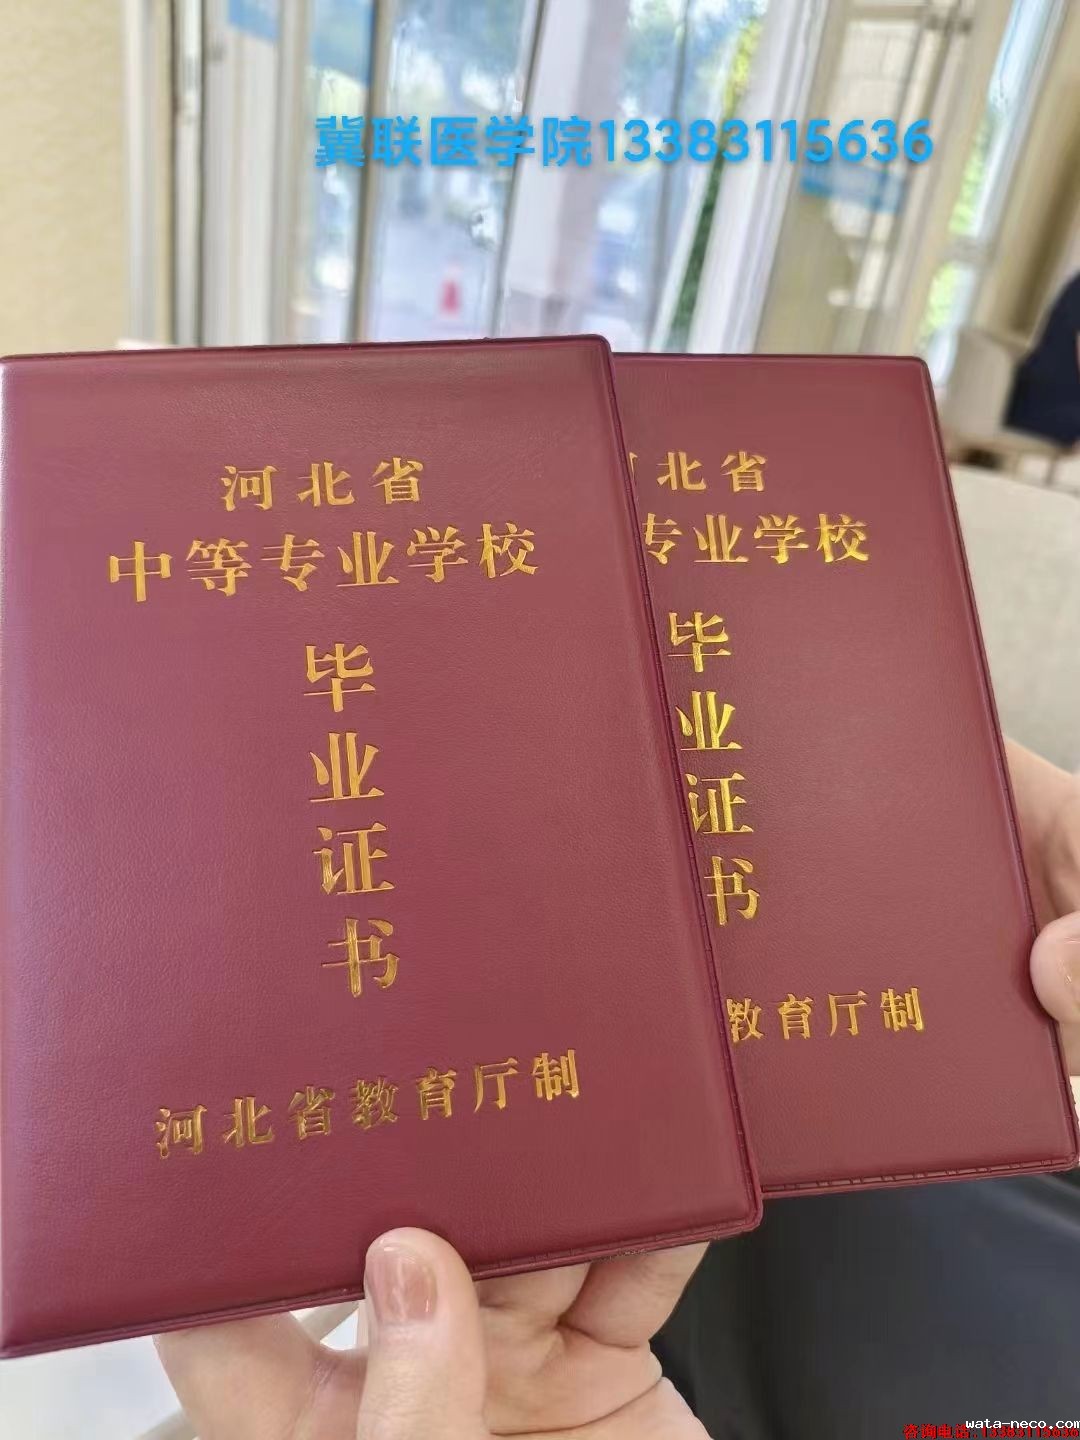 冀联医学院13383115636
河北省
中等专业学校
毕
业
证
书
河北省教育厅制
北省
专业学校
毕
业
证
书
教育厅制
wata-neco.com
咨询电话:13383115636